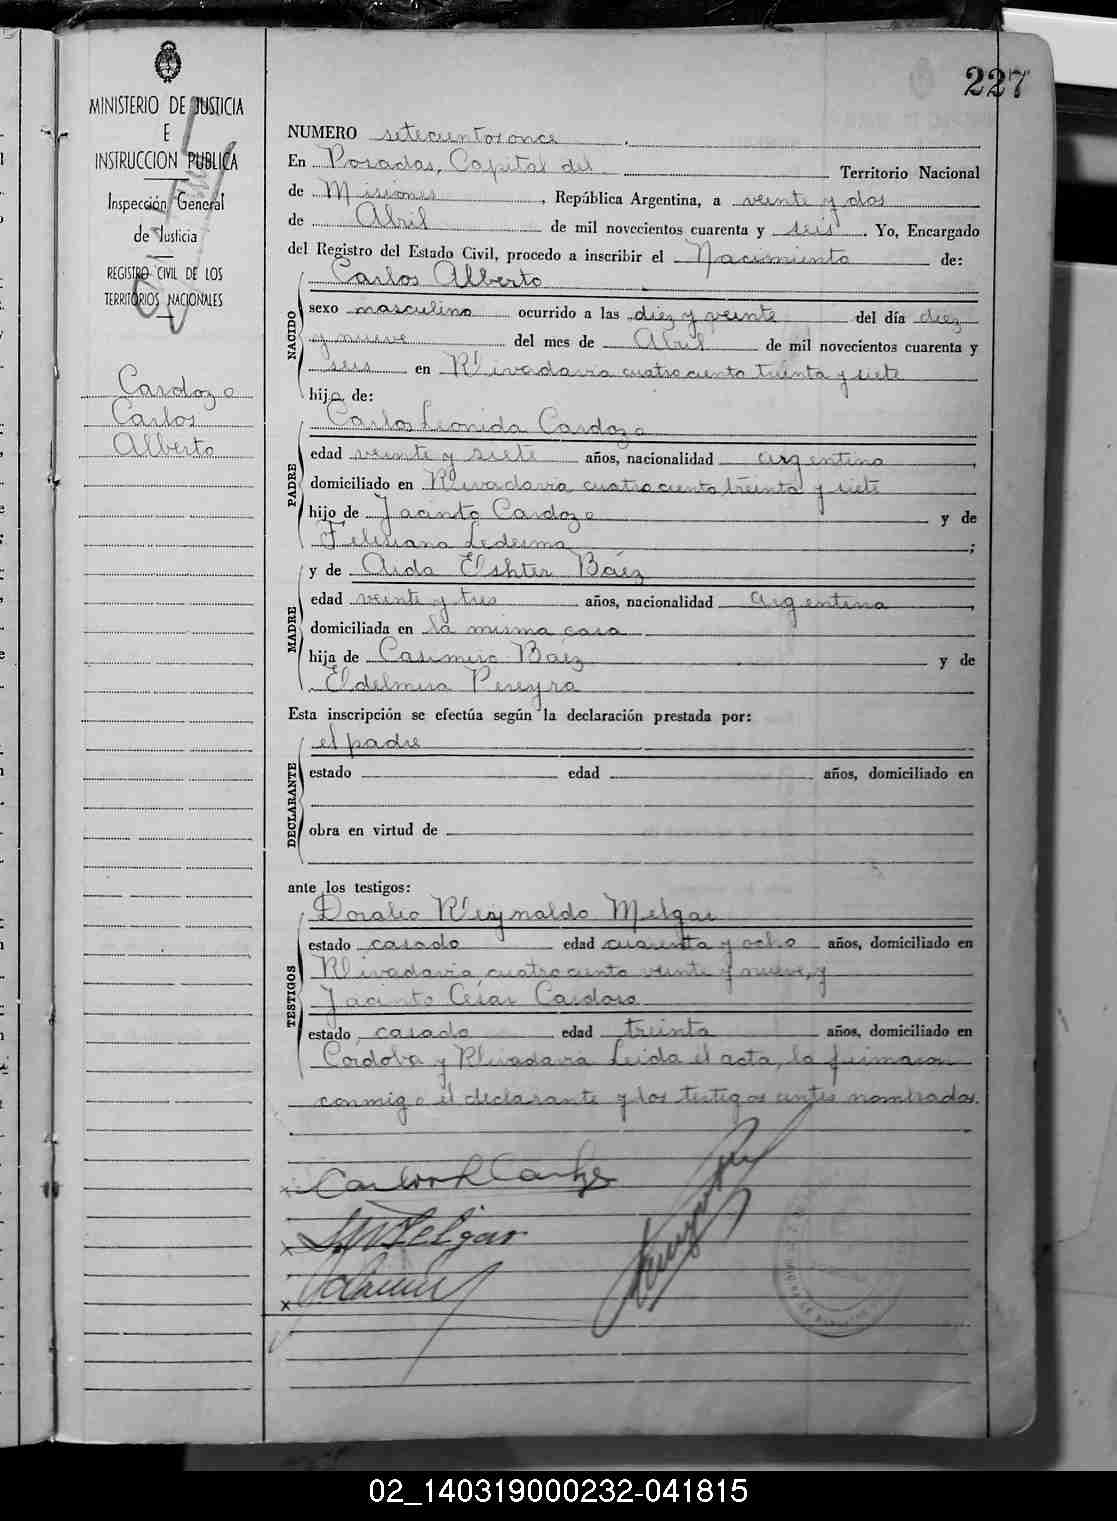 227
MINISTERIO DE JUSTICIA
E
INSTRUCCION PUBLICA
Inspección General
de Justicia
REGISTRO CIVIL DE LOS
TERRITORIOS NACIONALES
Cardozo
Carlos
Alberto
NUMERO setecientos once
En Posadas, Capital del Territorio Nacional
de Misiones, República Argentina, a veinte y dos
de Abril de mil novecientos cuarenta y seis. Yo, Encargado
del Registro del Estado Civil, procedo a inscribir el Nacimiento de:
NACIDO
Carlos Alberto
sexo masculino ocurrido a las diez y veinte del día diez
y nueve del mes de Abril de mil novecientos cuarenta y
seis en Rivadavia cuatrociento treinta y siete
hijo de:
PADRE
Carlos Leonida Cardozo
edad veinte y siete años, nacionalidad argentino,
domiciliado en Rivadavia cuatrociento treinta y siete
hijo de Jacinto Cardozo y de
Feliciana Ledesma;
MADRE
y de Aida Eshter Báez
edad veinte y tres años, nacionalidad argentina,
domiciliada en la misma casa
hija de Casimiro Baez y de
Eldelmira Pereyra
Esta inscripción se efectúa según la declaración prestada por:
DECLARANTE
el padre
estado edad años, domiciliado en
obra en virtud de
ante los testigos:
TESTIGOS
Doralio Reynaldo Melgar
estado casado edad cuarenta y ocho años, domiciliado en
Rivadavia cuatrociento veinte y nueve, y
Jacinto César Cardozo
estado casado edad treinta años, domiciliado en
Cordoba y Rivadavia Leida el acta, la firmaron
conmigo el declarante y los testigos antes nombrados.
02_140319000232-041815